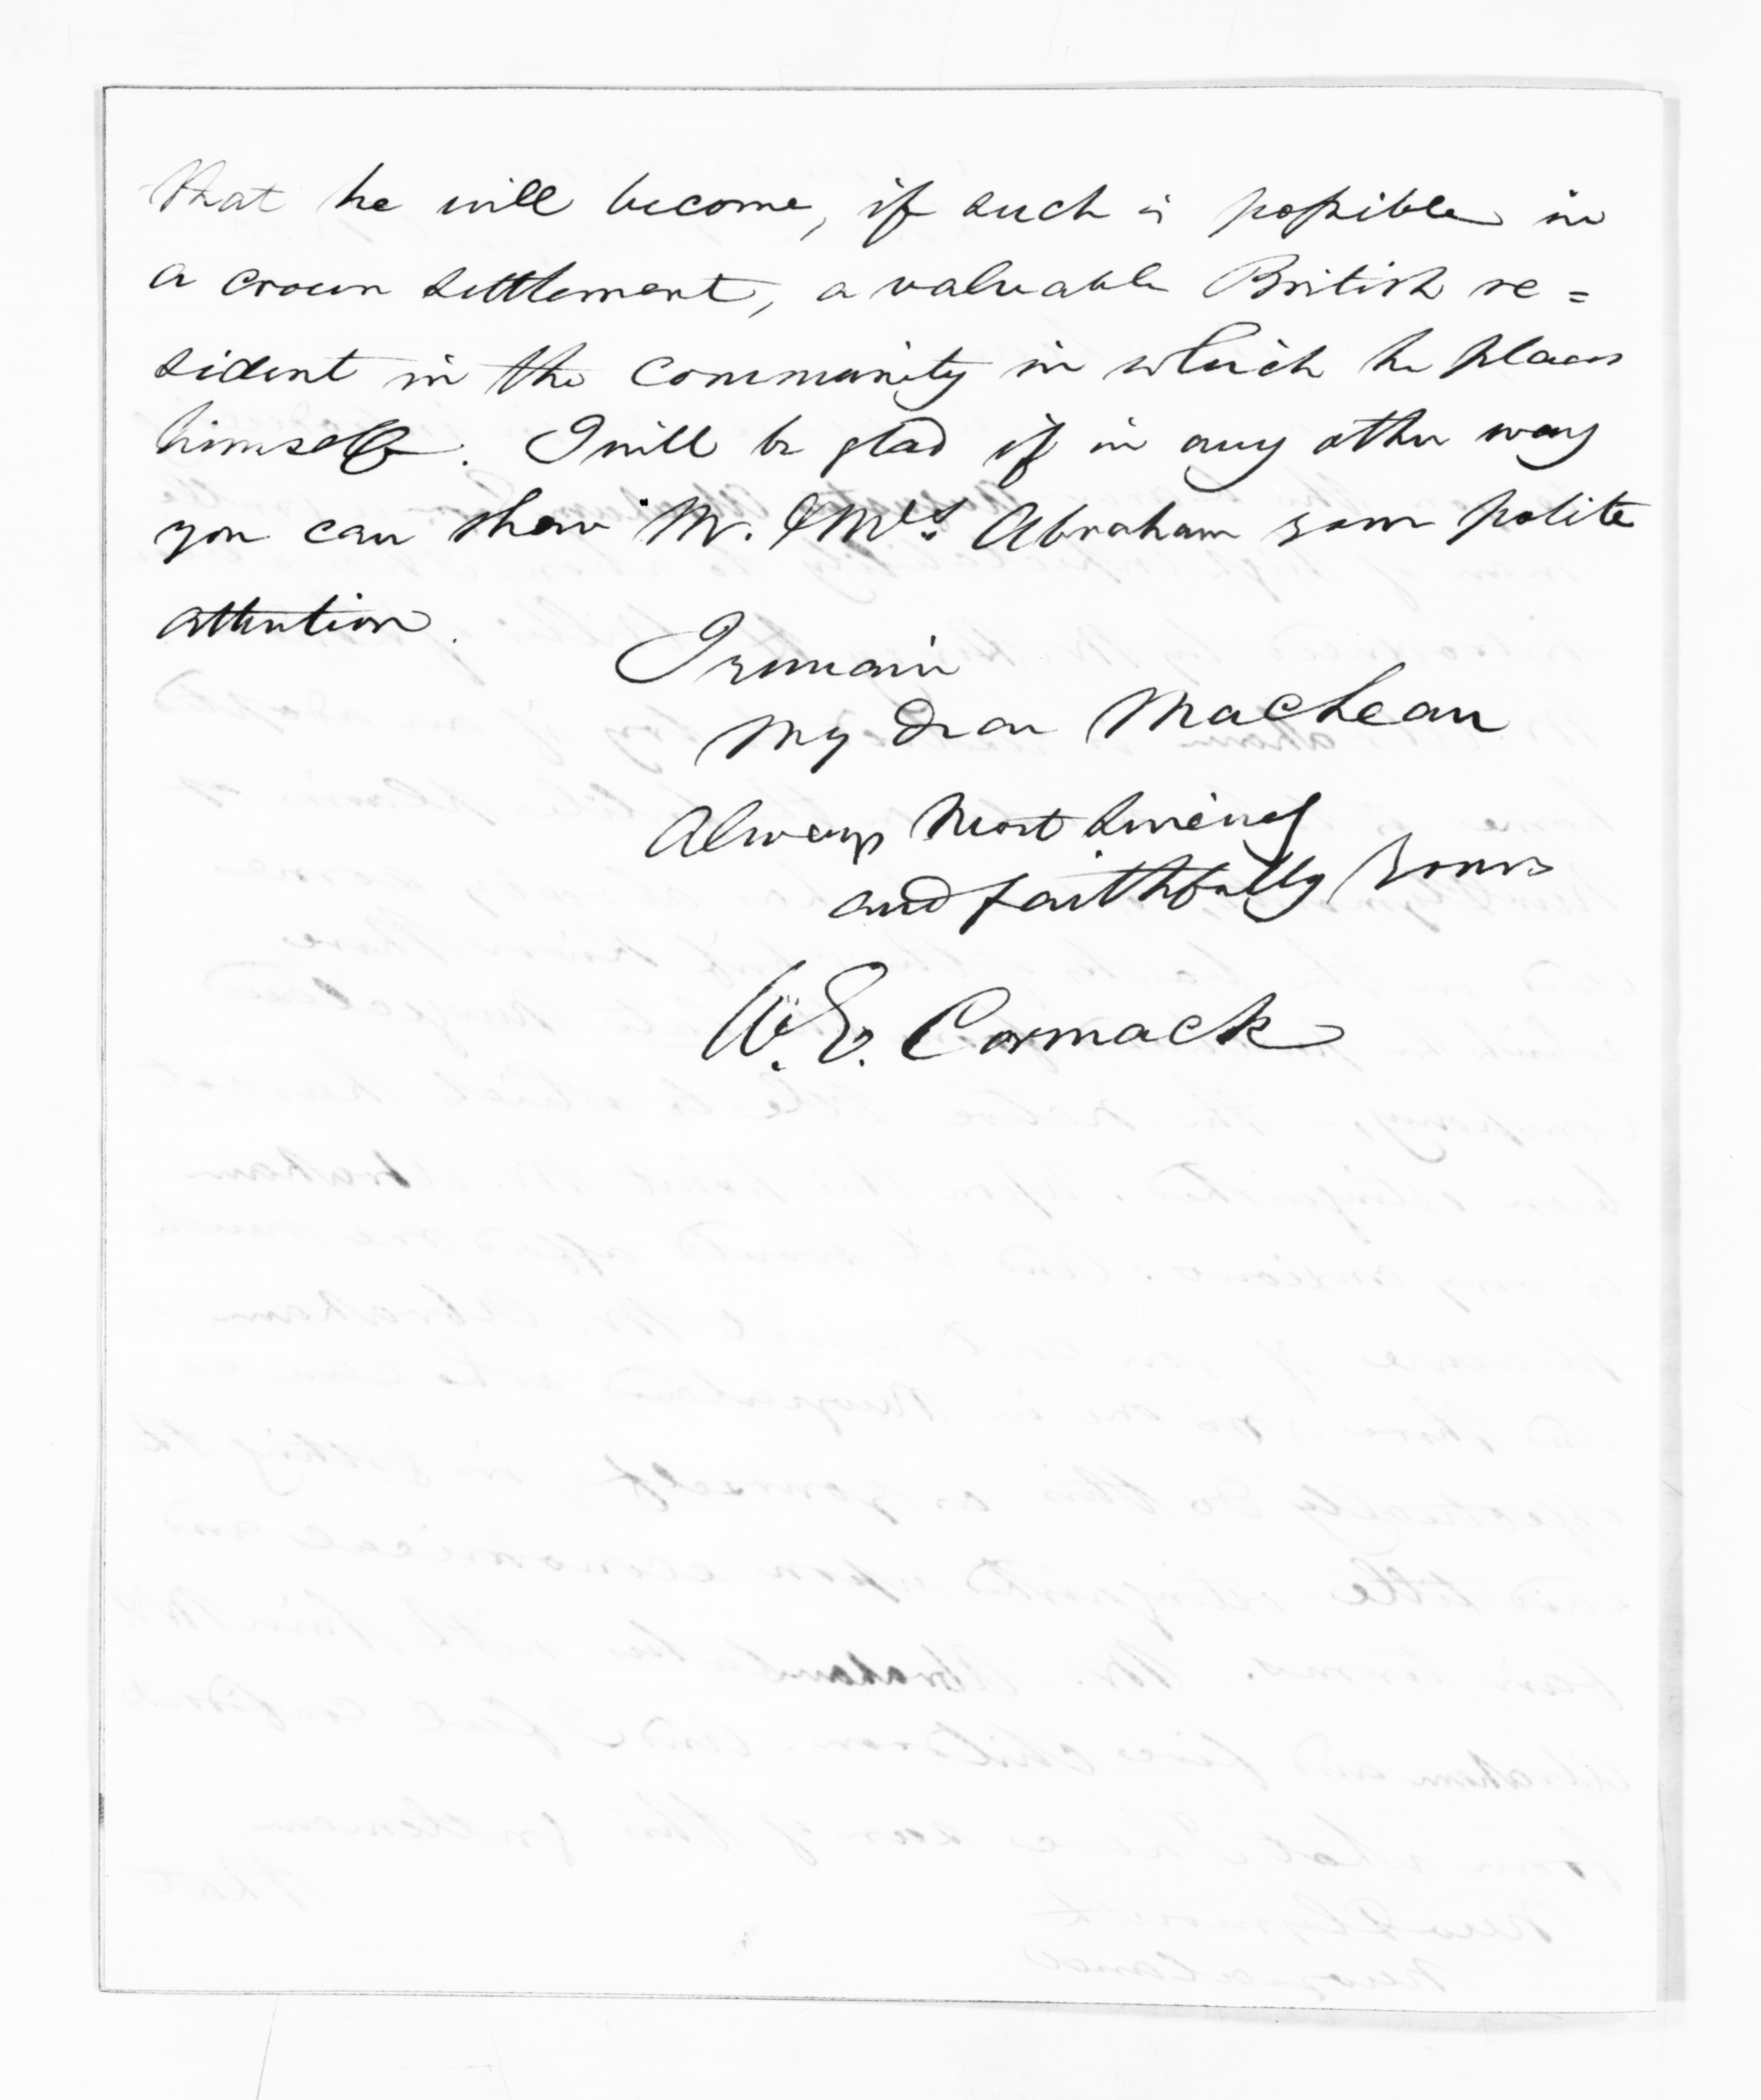 that he will become, if such is possible in
a crown settlement, a valuable British re=
sident in the community in which he places
himself. I will be glad if in any other way
you can show Mr. & Mrs. Abraham some polite
attention.
I remain
My dear MacLean
Always most sincerely
and faithfully Yours
W. E. Cormack